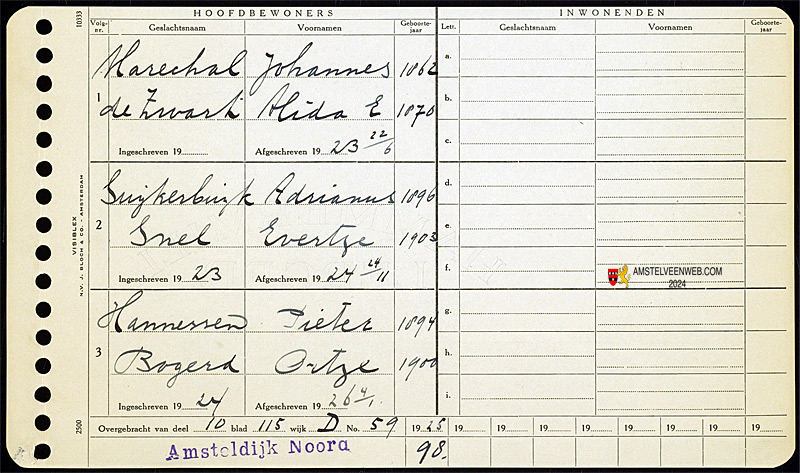 10333
HOOFDBEWONERS INWONENDEN
Volg-nr. Geslachtsnaam Voornamen Geboorte-jaar Lett. Geslachtsnaam Voornamen Geboorte-jaar
Marechal Johannes 1862 a.
1 de Zwart Alida E 1870 b.
c.
Ingeschreven 19 Afgeschreven 19 23 22/6
Suijkerbuijk Adrianus 1896 d.
2 Snel Evertze 1903 e.
f.
Ingeschreven 19 23 Afgeschreven 19 24 24/11
AMSTELVEENWEB.COM
2024
Hannessen Pieter 1894 g.
3 Bogerd Ortze 1900 h.
i.
Ingeschreven 19 24 Afgeschreven 19 26 4/1.
Overgebracht van deel 10 blad 115 wijk D No. 59 19 25 19 19 19 19 19 19 19 19
Amsteldijk Noord 98.
VISIBLEX
N.V. J. BLOCH & CO. AMSTERDAM
2500